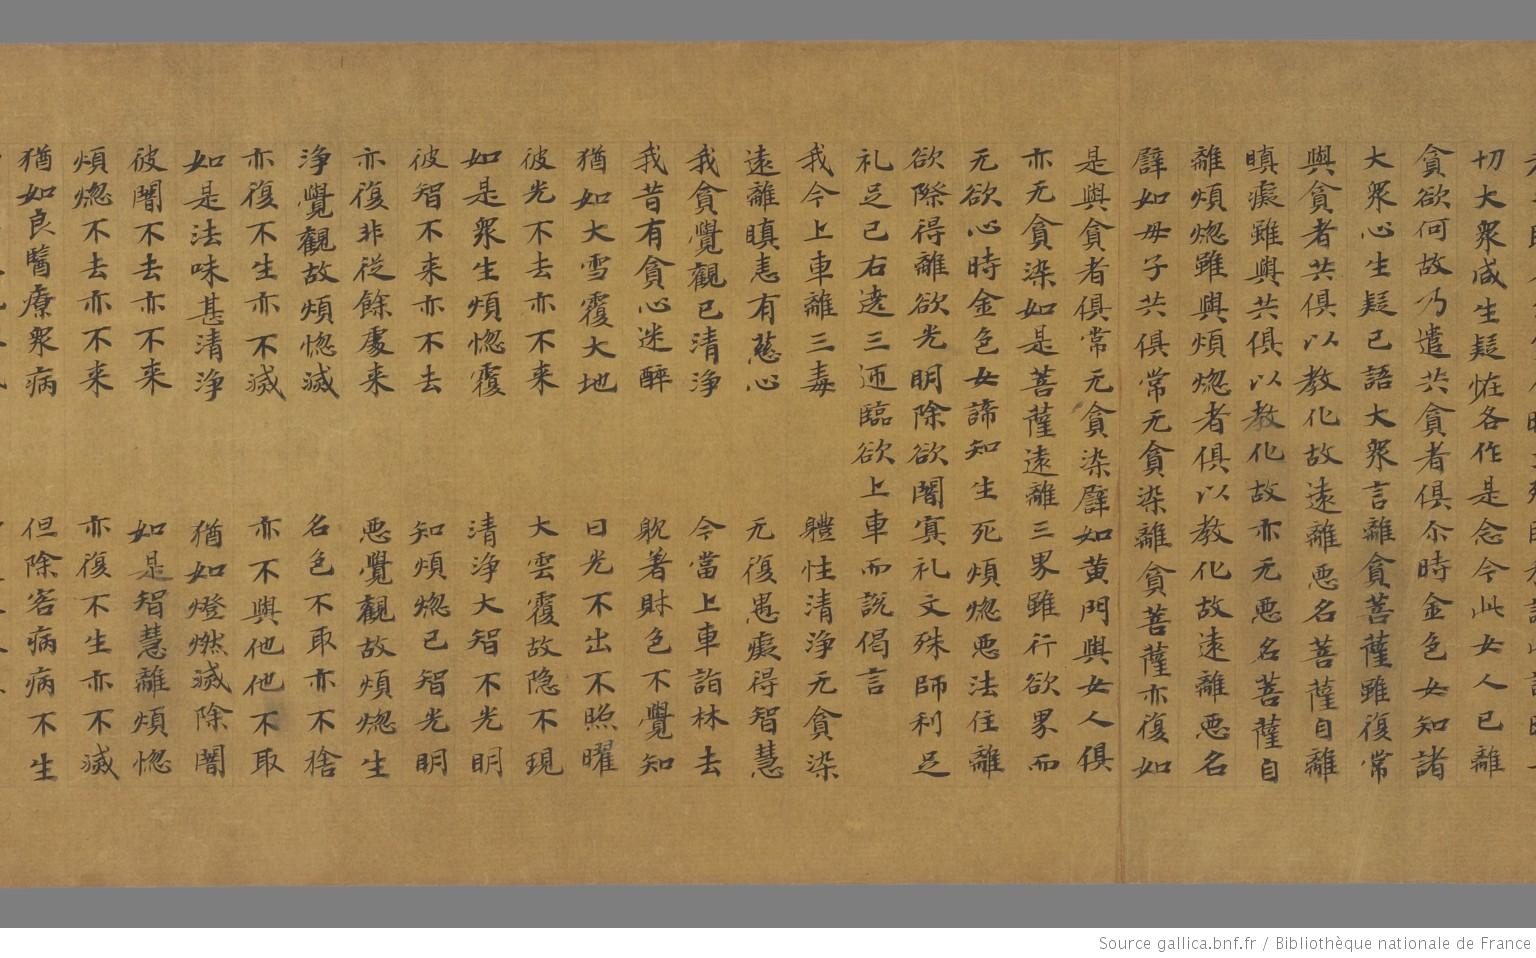 切大衆咸生疑恠各作是念今此女人已離
貪欲何故乃遣共貪者俱尒時金色女知諸
大衆心生疑已語大衆言離貪菩薩雖復常
與貪者共俱以教化故遠離悪名菩薩自離
瞋癡雖與共俱以教化故亦无悪名菩薩自
離煩惚雖與煩惚者俱以教化故遠離悪名
譬如母子共俱常无貪染離貪菩薩亦復如
是與貪者俱常无貪染譬如黄門與女人俱
亦无貪染如是菩薩遠離三界雖行欲界而
无欲心時金色女諦知生死煩惚悪法住離
欲際得離欲光明除欲闇寘礼文殊師利足
礼足已右遶三迊臨欲上車而說偈言
我今上車離三毒 軆性清淨无貪染
遠離瞋恚有慈心 无復愚癡得智慧
我貪覺觀已清淨 今當上車詣林去
我昔有貪心迷醉 躭著財色不覺知
猶如大雪覆大地 日光不出不照曜
彼光不去亦不来 大雲覆故隐不現
如是衆生煩惚覆 清淨大智不光明
彼智不来亦不去 知煩惚已智光明
亦復非從餘處来 悪覺觀故煩惚生
淨覺觀故煩惚滅 名色不取亦不捨
亦復不生亦不滅 亦不與他他不取
如是法味甚清淨 猶如燈燃滅除闇
彼闇不去亦不来 如是智慧離煩惚
煩惚不去亦不来 亦復不生亦不滅
猶如良醫療衆病 但除客病病不生
Source gallica.bnf.fr / Bibliothèque nationale de France